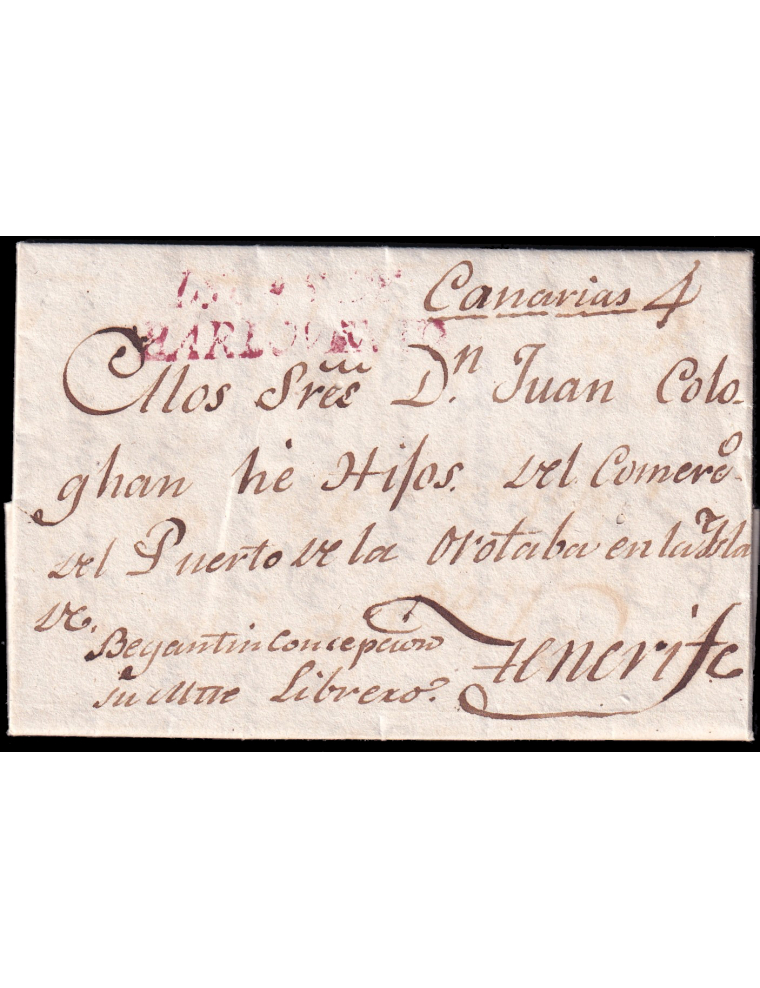 Canarias 4
A los Sres Dn. Juan Colo-
ghan hè Hijos. del Comerco
del Puerto de la Orotaba en la Ysla
de. Tenerife
Begantin Concepcion
su Mtre Librero.